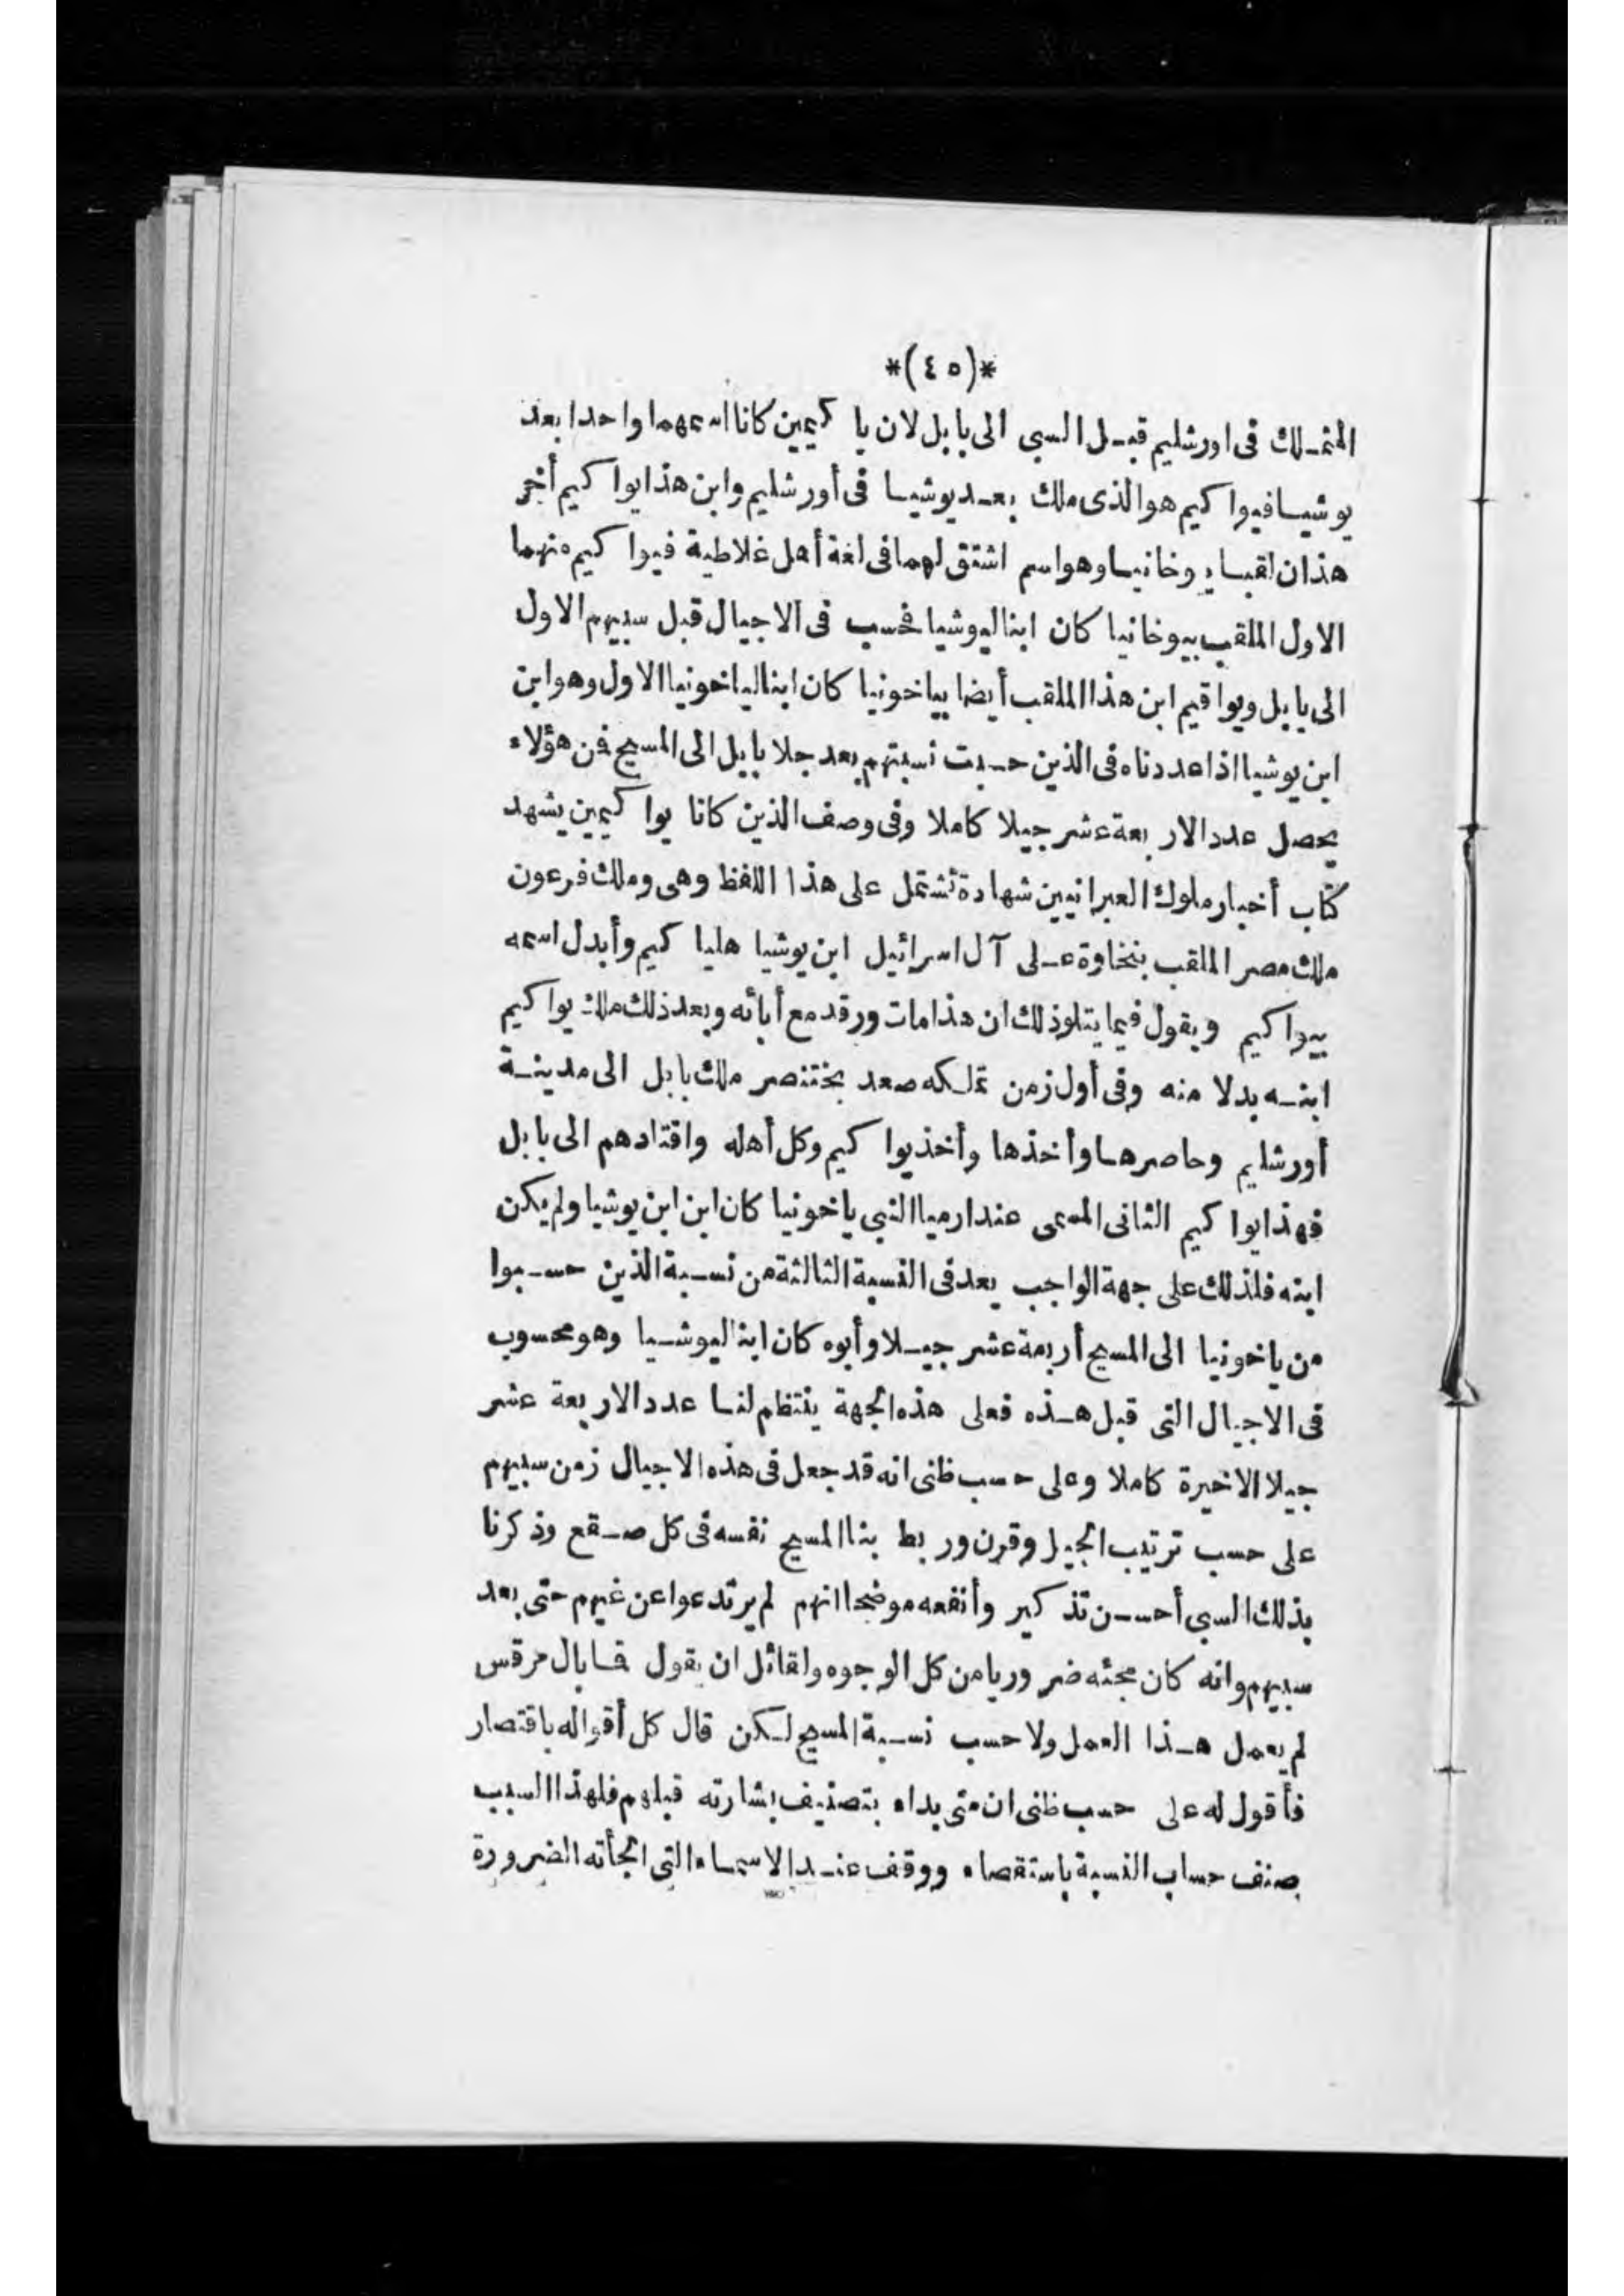 *(٤٥)*
المتملك فى اورشليم قبل السبى الى بابل لان يا كيمين كانا اسمهما واحدا بعد
يوشيا فيوا كيم هو الذى ملك بعد يوشيا فى أورشليم وابن هذا يوا كيم أخر
هذان لقبا يوخانيا وهو اسم اشتق لهما فى لغة أهل غلاطية فيوا كيم منهما
الاول الملقب بيوخانيا كان ابنا ليوشيا فحسب فى الاجيال قبل سبيهم الاول
الى بابل ويواقيم ابن هذا الملقب أيضا بياخونيا كان ابنا لياخونيا الاول وهو ابن
ابن يوشيا اذا عددناه فى الذين حسبت نسبتهم بعد جلا بابل الى المسيح فن هؤلاء
يحصل عدد الاربعة عشر جيلا كاملا وفى وصف الذين كانا يوا كيمين يشهد
كتاب أخبار ملوك العبرانيين شهادة تشتمل على هذا اللفظ وهى وملك فرعون
ملك مصر الملقب بنخاوة على آل اسرائيل ابن يوشيا هليا كيم وأبدل اسمه
بيوا كيم ويقول فيما يتلوذلك ان هذا مات ورقد مع أبائه وبعد ذلك ملك يوا كيم
ابنه بدلا منه وفى أول زمن تملكه صعد بختنصر ملك بابل الى مدينة
أورشليم وحاصرها وأخذها وأخذ يوا كيم وكل أهله واقتادهم الى بابل
فهذا يوا كيم الثانى المسمى عند ارميا النبى ياخونيا كان ابن ابن يوشيا ولم يكن
ابنه فلذلك على جهة الواجب يعد فى النسبة الثالثة من نسبة الذين حسبوا
من ياخونيا الى المسيح أربعة عشر جيلا وأبوه كان ابنا ليوشيا وهو محسوب
فى الاجيال التى قبل هذه فعلى هذه الجهة ينتظم لنا عدد الاربعة عشر
جيلا الاخيرة كاملا وعلى حسب ظنى انه قد جعل فى هذه الاجيال زمن سبيهم
على حسب ترتيب الجيل وقرن وربط بنا المسيح نفسه فى كل صقع وذكرنا
بذلك السبى أحسن تذكير وأنفعه موضحا انهم لم يرتدعوا عن غيهم حتى بعد
سبيهم وانه كان مجئه ضروريا من كل الوجوه ولقائل ان يقول فا بال مرقس
لم يعمل هذا العمل ولا حسب نسبة المسيح لكن قال كل أقواله باقتصار
فأقول له على حسب ظنى ان متى بداء بتصنيف بشارته قبلهم فلهذا السبب
صنف حساب النسبة باستقصاء ووقف عند الاسماء التى الجأته الضرورة